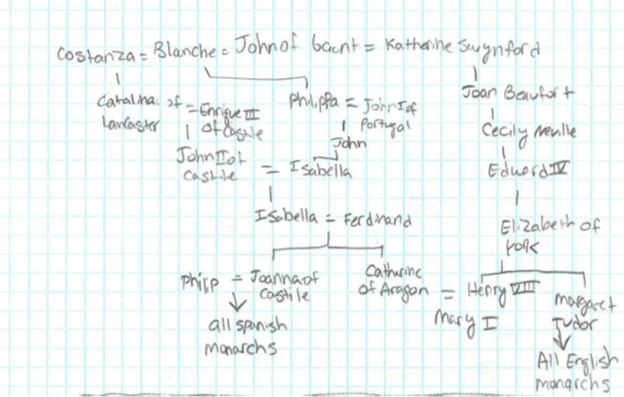 Costanza = Blanche = John of Gaunt = Katherine Swynford
Catalina of = Enrique III Philippa = John I of Joan Beaufort
Lancaster of Castile Portugal
John Cecily Neville
John II of = Isabella Edward IV
Castile
Isabella = Ferdinand Elizabeth of
York
Philip = Joanna of Catherine = Henry VIII Margaret
Castile of Aragon Tudor
Mary I
all spanish All English
monarchs monarchs